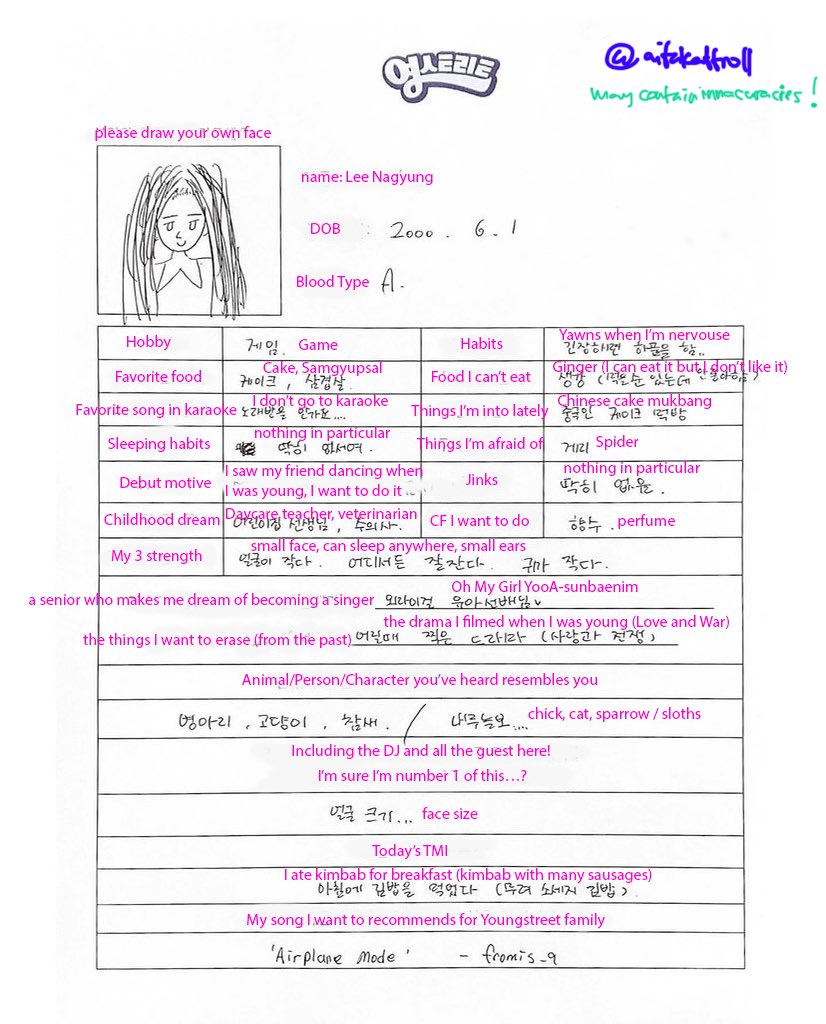 영스트리트
@aitzkattroll
may contain innacuracies!
please draw your own face
name: Lee Nagyung
DOB : 2000. 6. 1
Blood Type A.
Hobby 게임. Game Habits Yawns when I'm nervouse
긴장하면 하품을 함..
Favorite food Cake, Samgyupsal Food I can't eat Ginger (I can eat it but I don't like it)
케이크, 삼겹살. 생강 (먹을순 있는데 안좋아함)
Favorite song in karaoke I don't go to karaoke Things I'm into lately Chinese cake mukbang
노래방을 안가요.... 중국인 케이크 먹방
Sleeping habits nothing in particular Things I'm afraid of 거미 Spider
딱히 없어여.
Debut motive I saw my friend dancing when Jinks nothing in particular
I was young, I want to do it 딱히 없음.
Childhood dream Daycare teacher, veterinarian CF I want to do 향수. perfume
어린이집 선생님, 수의사.
My 3 strength small face, can sleep anywhere, small ears
얼굴이 작다. 어디서든 잘잔다. 귀가 작다.
Oh My Girl YooA-sunbaenim
a senior who makes me dream of becoming a singer 오마이걸 유아선배님
the drama I filmed when I was young (Love and War)
the things I want to erase (from the past) 어릴때 찍은 드라마 (사랑과 전쟁)
Animal/Person/Character you've heard resembles you
병아리, 고양이, 참새. / 나무늘보... chick, cat, sparrow / sloths
Including the DJ and all the guest here!
I'm sure I'm number 1 of this...?
얼굴 크기... face size
Today's TMI
I ate kimbab for breakfast (kimbab with many sausages)
아침에 김밥을 먹었다 (무려 소세지 김밥).
My song I want to recommends for Youngstreet family
'Airplane Mode' - fromis_9